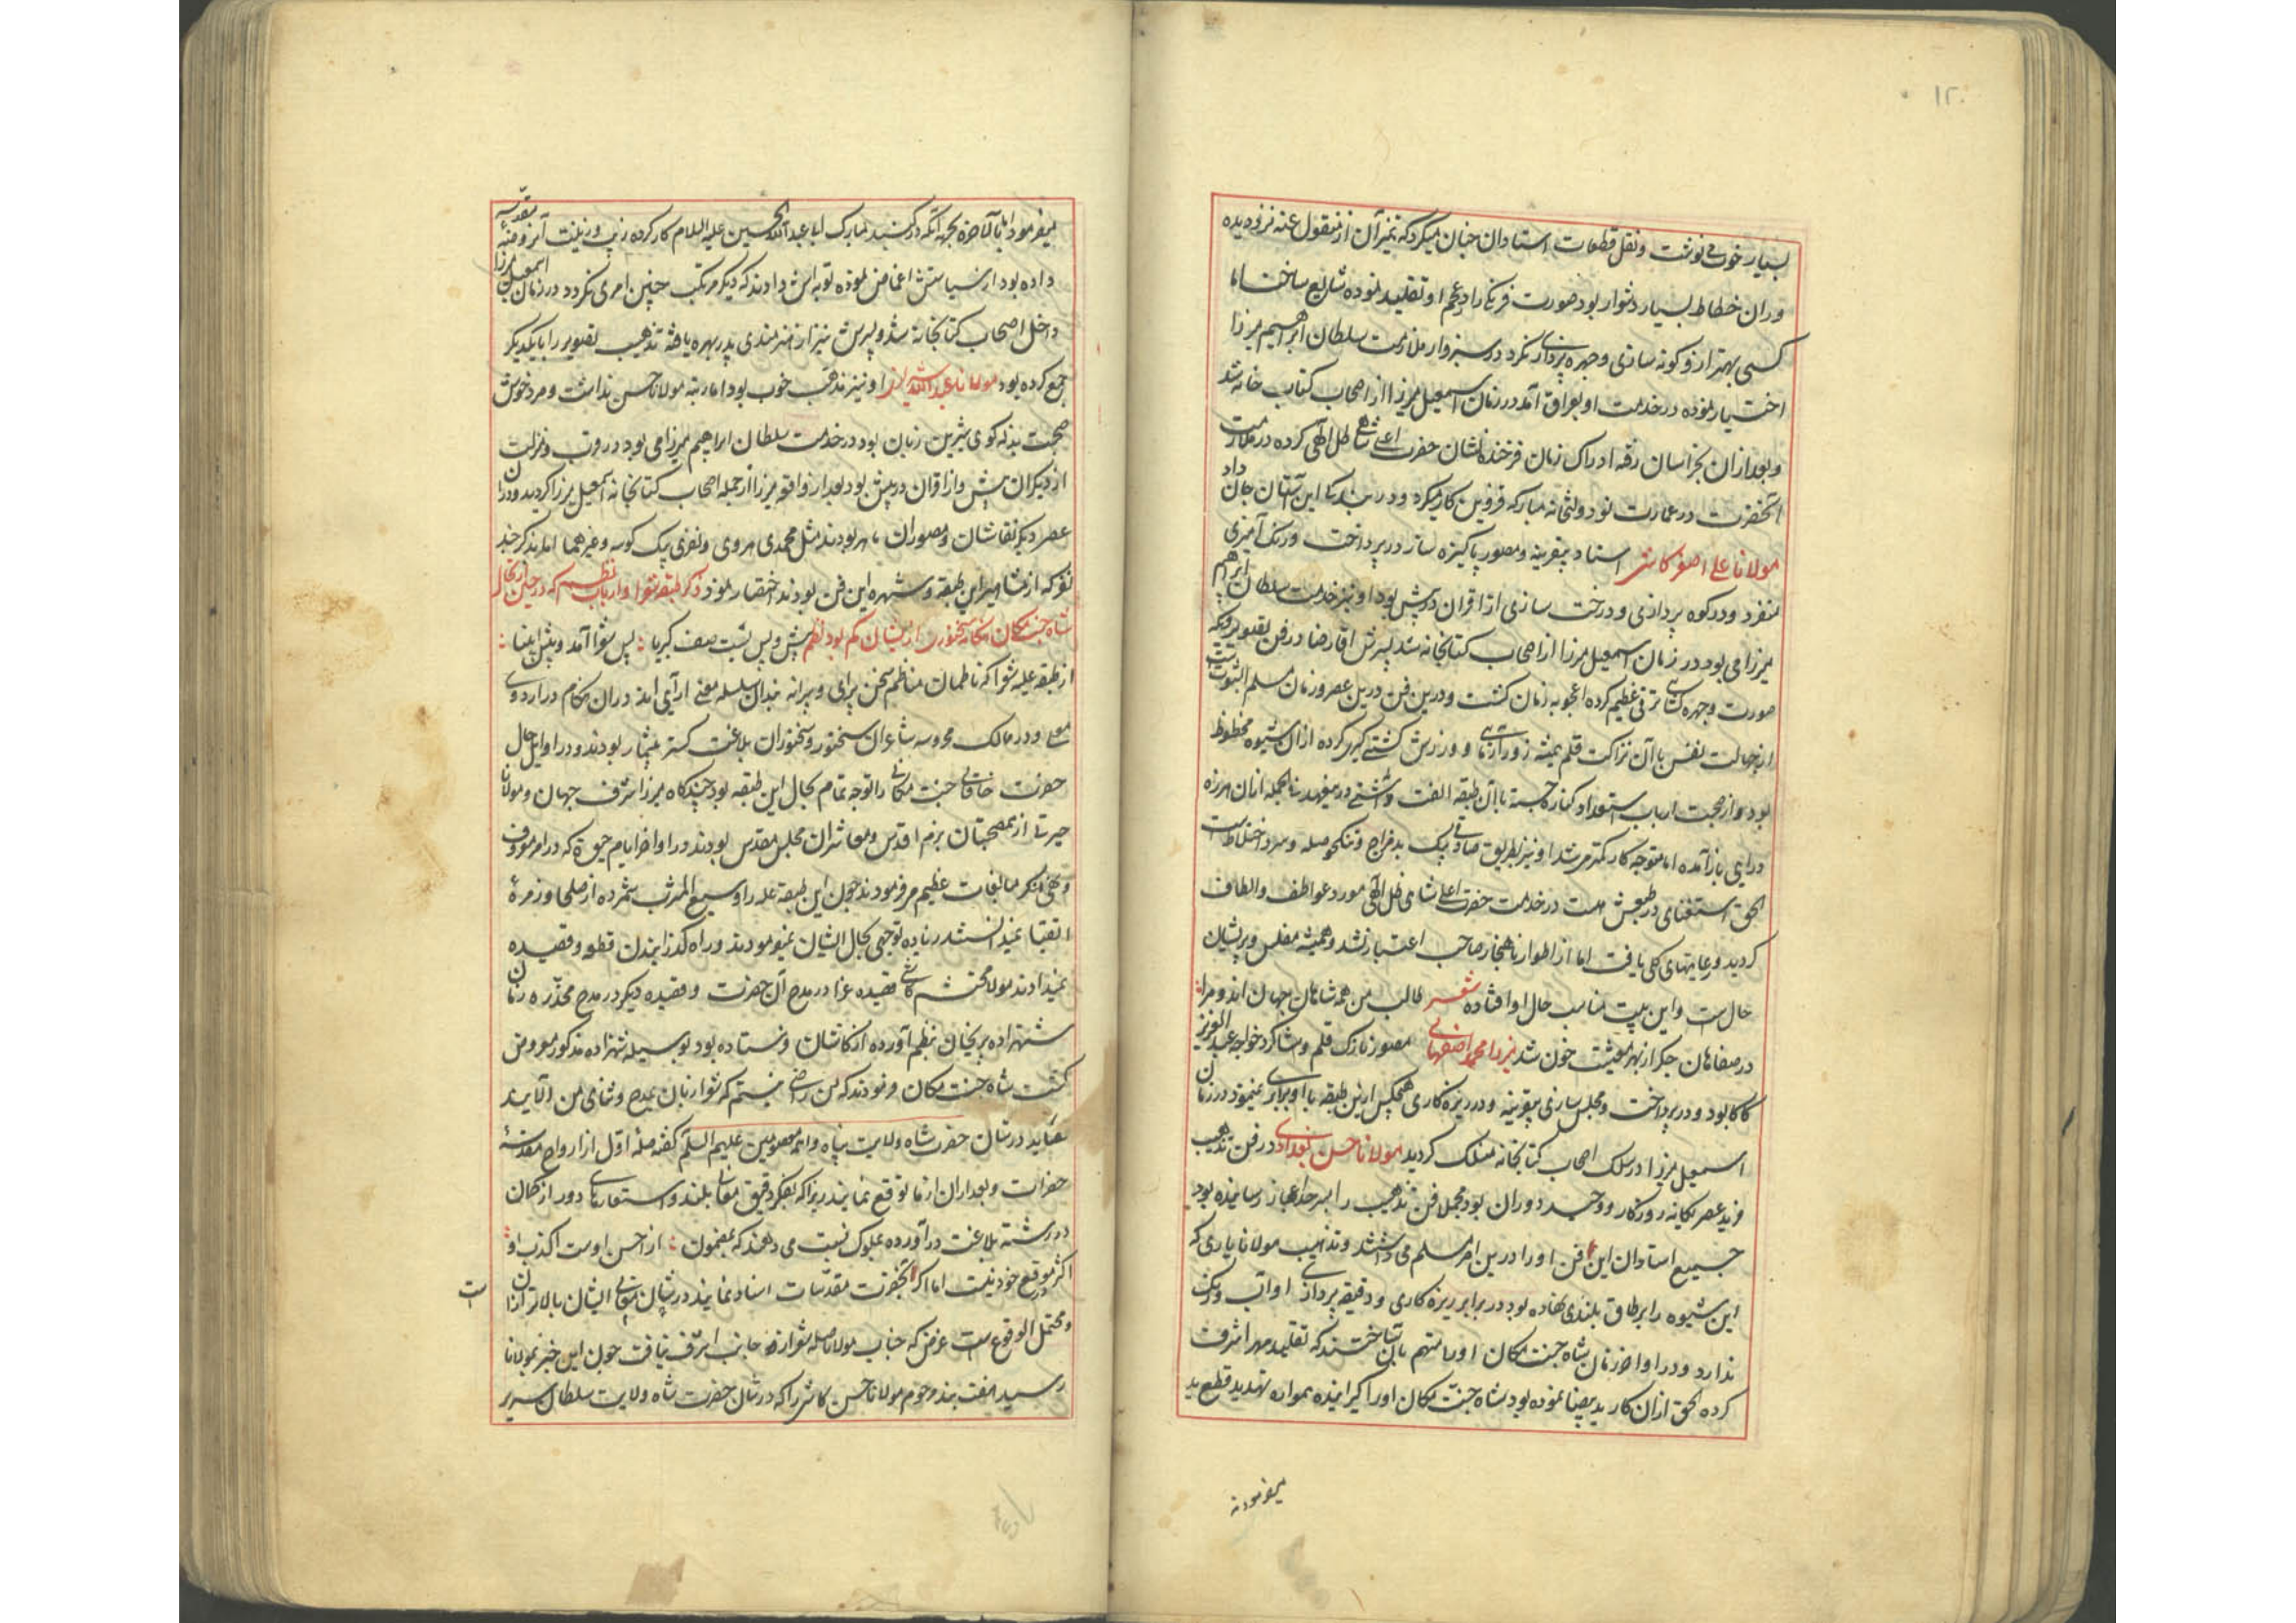 ۱۲۰
بسیار خوب می نوشت و نقل قطعات استادان چنان میکرد که تمیز آن از منقول عنه نزد دیده
وران خطاط بسیار دشوار بود صورت فرنگی را در عجم او تقلید نموده شایع ساخت اما
کسی بهتر از و گونه سازی و چهره پردازی نکرد در سبزوار ملازمت سلطان ابراهیم میرزا
اختیار نموده در خدمت او بعراق آمد در زمان اسمعیل میرزا از اصحاب کتاب خانه شد
و بعد ازان بخراسان رفته ادراک زمان فرخنده نشان حضرت اعلی شاهی ظل اللهی کرده در ملازمت
آنحضرت در عمارت نو دولتخانه مبارکه قزوین کار میکرد و در بندگی این آستان جان داد
مولانا علی اصغر کاشی استاد بیقرینه و مصور پاکیزه ساز در پرداخت و رنگ آمیزی
منفرد و در کوه پردازی و درخت سازی از اقران در پیش بود او نیز خدمت سلطان ابراهیم
میرزا می بود در زمان اسمعیل میرزا از اصحاب کتابخانه شد پسرش آقا رضا در فن تصویر و یکه
صورت و چهره گشایی ترقی عظیم کرده اعجوبه زمان گشت و درین فن درین عصر و زمان مسلم الثبوتست
از جهالت نفس با آن نزاکت قلم همیشه زورآزمایی و ورزش کشتی گیری کرده ازان شیوه محظوظ
بود و از صحبت ارباب استعداد کناره جسته با آن طبقه الفت داشتی درینعهد فی الجمله ازان هرزه
درایی باز آمده اما متوجه کار کمتر میشد او نیز بطریق صادقی بیک بد مزاج و تنگ حوصله و سرد اختلاطست
الحق استغنایی در طبعش هست در خدمت حضرت اعلی شاهی ظل اللهی مورد عواطف و الطاف
گردید و رعایتهای کلی یافت اما از اطوار ناهنجار صاحب اعتبار نشد و همیشه مفلس و پریشان
حال ست و این بیت مناسب حال او افتاده شعر طالب من همه شاهان جهان اند و مرا
در صفاهان جگر از بهر معیشت خون شد میرزا محمد اصفهانی مصور نازک قلم و شاگرد خواجه عبد العزیز
کاکا بود و در پرداخت و مجلس سازی بیقرینه و در ریزه کاری هیچکس ازین طبقه با او برابری نمینمود در زمان
اسمعیل میرزا در سلک اصحاب کتابخانه منسلک گردید مولانا حسن بغدادی در فن تذهیب
فرید عصر یگانه روزگار و وحید دوران بود مجملا فن تذهیب را بسر حد اعجاز رسانیده بود
جمیع استادان این فن او را درین امر مسلم می داشتند و تذهیب مولانا یاری که
این شیوه را بر طاق بلندی نهاده بود در برابر ریزه کاری و دقیقه پردازی او آب و رنگی
ندارد و در اواخر زمان شاه جنت مکان او را متهم بان ساختند که تقلید مهر اشرف
کرده الحق ازان کار ید بیضا نموده بود شاه جنت مکان او را گیرانیده همواره تهدید قطع ید
میفرمودند
میفرمود اما بالاخره بجهة آنکه در گنبد مبارک ابا عبد الله الحسین علیه السلام کار کرده زیب و زینت آن روضه مقدسه
داده بود از سیاستش اغماض نموده توبه اش دادند که دیگر مرتکب چنین امری نگردد در زمان اسمعیل میرزا
داخل اصحاب کتابخانه شد و پسرش نیز از هنرمندی پدر بهره یافته تذهیب تصویر را با یکدیگر
جمع کرده بود مولانا عبد الله شیرازی او نیز مذهب خوب بود اما رتبه مولانا حسن نداشت و مرد خوش
صحبت بذله گوی شیرین زبان بود در خدمت سلطان ابراهیم میرزا می بود در قرب و منزلت
از دیگران بیش و از اقران در پیش بود بعد از واقعه میرزا از جمله اصحاب کتابخانه اسمعیل میرزا گردید و دران
عصر دیگر نقاشان و مصوران ماهر بودند مثل محمدی هروی و نقدی بیک کوسه و غیرهما اما بذکر چند
نفر که از مشاهیر این طبقه و شهره این فن بودند اختصار نمود ذکر طبقه شعرا و ارباب نظم که در حین ارتحال
پیش و پس بست صف کبریا پس شعرا آمد و پیش انبیا
از طبقه علیه شعرا که ناظمان مناظم سخن پیرای و پیرایه بندان سلسله معنی آرایی اند دران هنگام در اردوی
معلی و در ممالک محروسه شاعران سخنور و سخنوران بلاغت گستر بیشمار بودند و در اوایل حال
حضرت خاقانی جنت مکانی را توجه تمام بحال این طبقه بود چندگاه میرزا شرف جهان و مولانا
حیرتی از همصحبتان بزم اقدس و معاشران مجلس مقدس بودند و در اواخر ایام حیوة که در امر معروف
و نهی منکر مبالغات عظیم میفرمودند چون این طبقه علیه را وسیع المشرب شمرده از صلحا و زمره
اتقیا نمیدانستند زیاده توجهی بحال ایشان نمیفرمودند و راه گذرانیدن قطعه و قصیده
نمیدادند مولانا محتشم کاشی قصیده غرا در مدح آن حضرت و قصیده دیگر در مدح مخدره زمان
شهزاده پریخان بنظم آورده از کاشان فرستاده بود بوسیله شهزاده مذکور معروض
گشت شاه جنت مکان فرمودند که من راضی نیستم که شعرا زبان بمدح و ثنای من آلایند
قصاید در شان حضرت شاه ولایت پناه و ائمه معصومین علیهم السلم گفته صله اول از ارواح مقدسه
حضرات و بعد ازان از ما توقع نمایند زیرا که بفکر دقیق معانی بلند و استعارهای دور از کار
در رشته بلاغت درآورده بملوک نسبت می دهند که بمضمون از احسن اوست اکذب او
اکثر در موقع خود نیست اما اگر بحضرات مقدسات اسناد نمایند در شان معالی ایشان بالاتر ازان
است
و محتمل الوقوع ست غرض که جناب مولانا صله شعر از جانب اشرف نیافت چون این خبر بمولانا
رسید هفت بند مرحوم مولانا حسن کاشی را که در شان حضرت شاه ولایت سلطان سریر